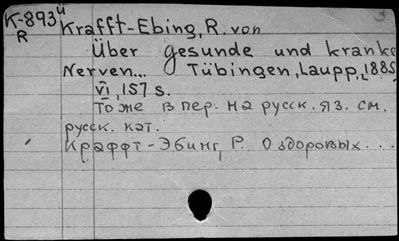 K-893u Krafft-Ebing, R. von
R
Über gesunde und kranke
Nerven... Tübingen, Laupp, 1885
VI, 157 s.
То же в пер. на русск. яз. см.
русск. кат.
Краффт-Эбинг, Р. О здоровых...